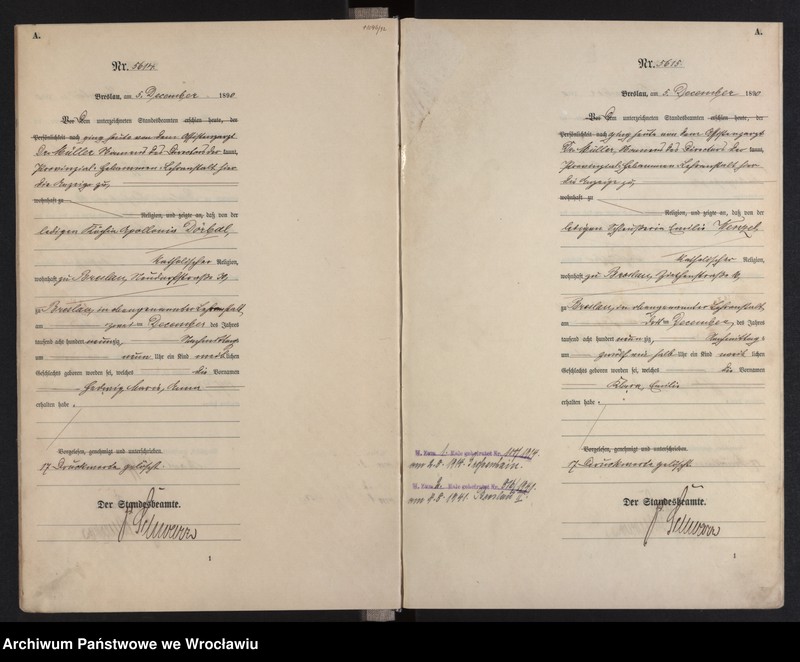 A.
Nr. 5614
Breslau, am 5. December 1890
Vor dem unterzeichneten Standesbeamten erschien heute, der
Persönlichkeit nach ging heute von dem Assistenzarzt
Dr. Müller Namens des Directors der kannt,
Provinzial-Hebammen-Lehranstalt hier
die Anzeige zu,
wohnhaft zu
Religion, und zeigte an, daß von der
ledigen Köchin Apollonia
katholischer Religion,
wohnhaft zu Breslau,
zu Breslau, in obengenannter Lehranstalt
am zweiten December des Jahres
tausend acht hundert neunzig, Nachmittags
um neun Uhr ein Kind weiblichen
Geschlechts geboren worden sei, welches die Vornamen
Hedwig, Maria, Anna
erhalten habe.
Vorgelesen, genehmigt und unterschrieben.
17 Druckworte gelöscht.
Der Standesbeamte.
1
A.
Nr. 5615
Breslau, am 5. December 1890
Vor dem unterzeichneten Standesbeamten erschien heute, der
Persönlichkeit nach ging heute von dem Assistenzarzt
Dr. Müller Namens des Directors der kannt,
Provinzial-Hebammen-Lehranstalt hier
die Anzeige zu,
wohnhaft zu
Religion, und zeigte an, daß von der
ledigen Emilie Wenzel
katholischer Religion,
wohnhaft zu Breslau,
zu Breslau, in obengenannter Lehranstalt
am dritten December des Jahres
tausend acht hundert neunzig, Nachmittags
um halb Uhr ein Kind weiblichen
Geschlechts geboren worden sei, welches die Vornamen
Klara, Emilie
erhalten habe.
Vorgelesen, genehmigt und unterschrieben.
17 Druckworte gelöscht.
Der Standesbeamte.
1
1. Male geheiratet Nr.
2. Male geheiratet Nr.
1941. Breslau
Archiwum Państwowe we Wrocławiu